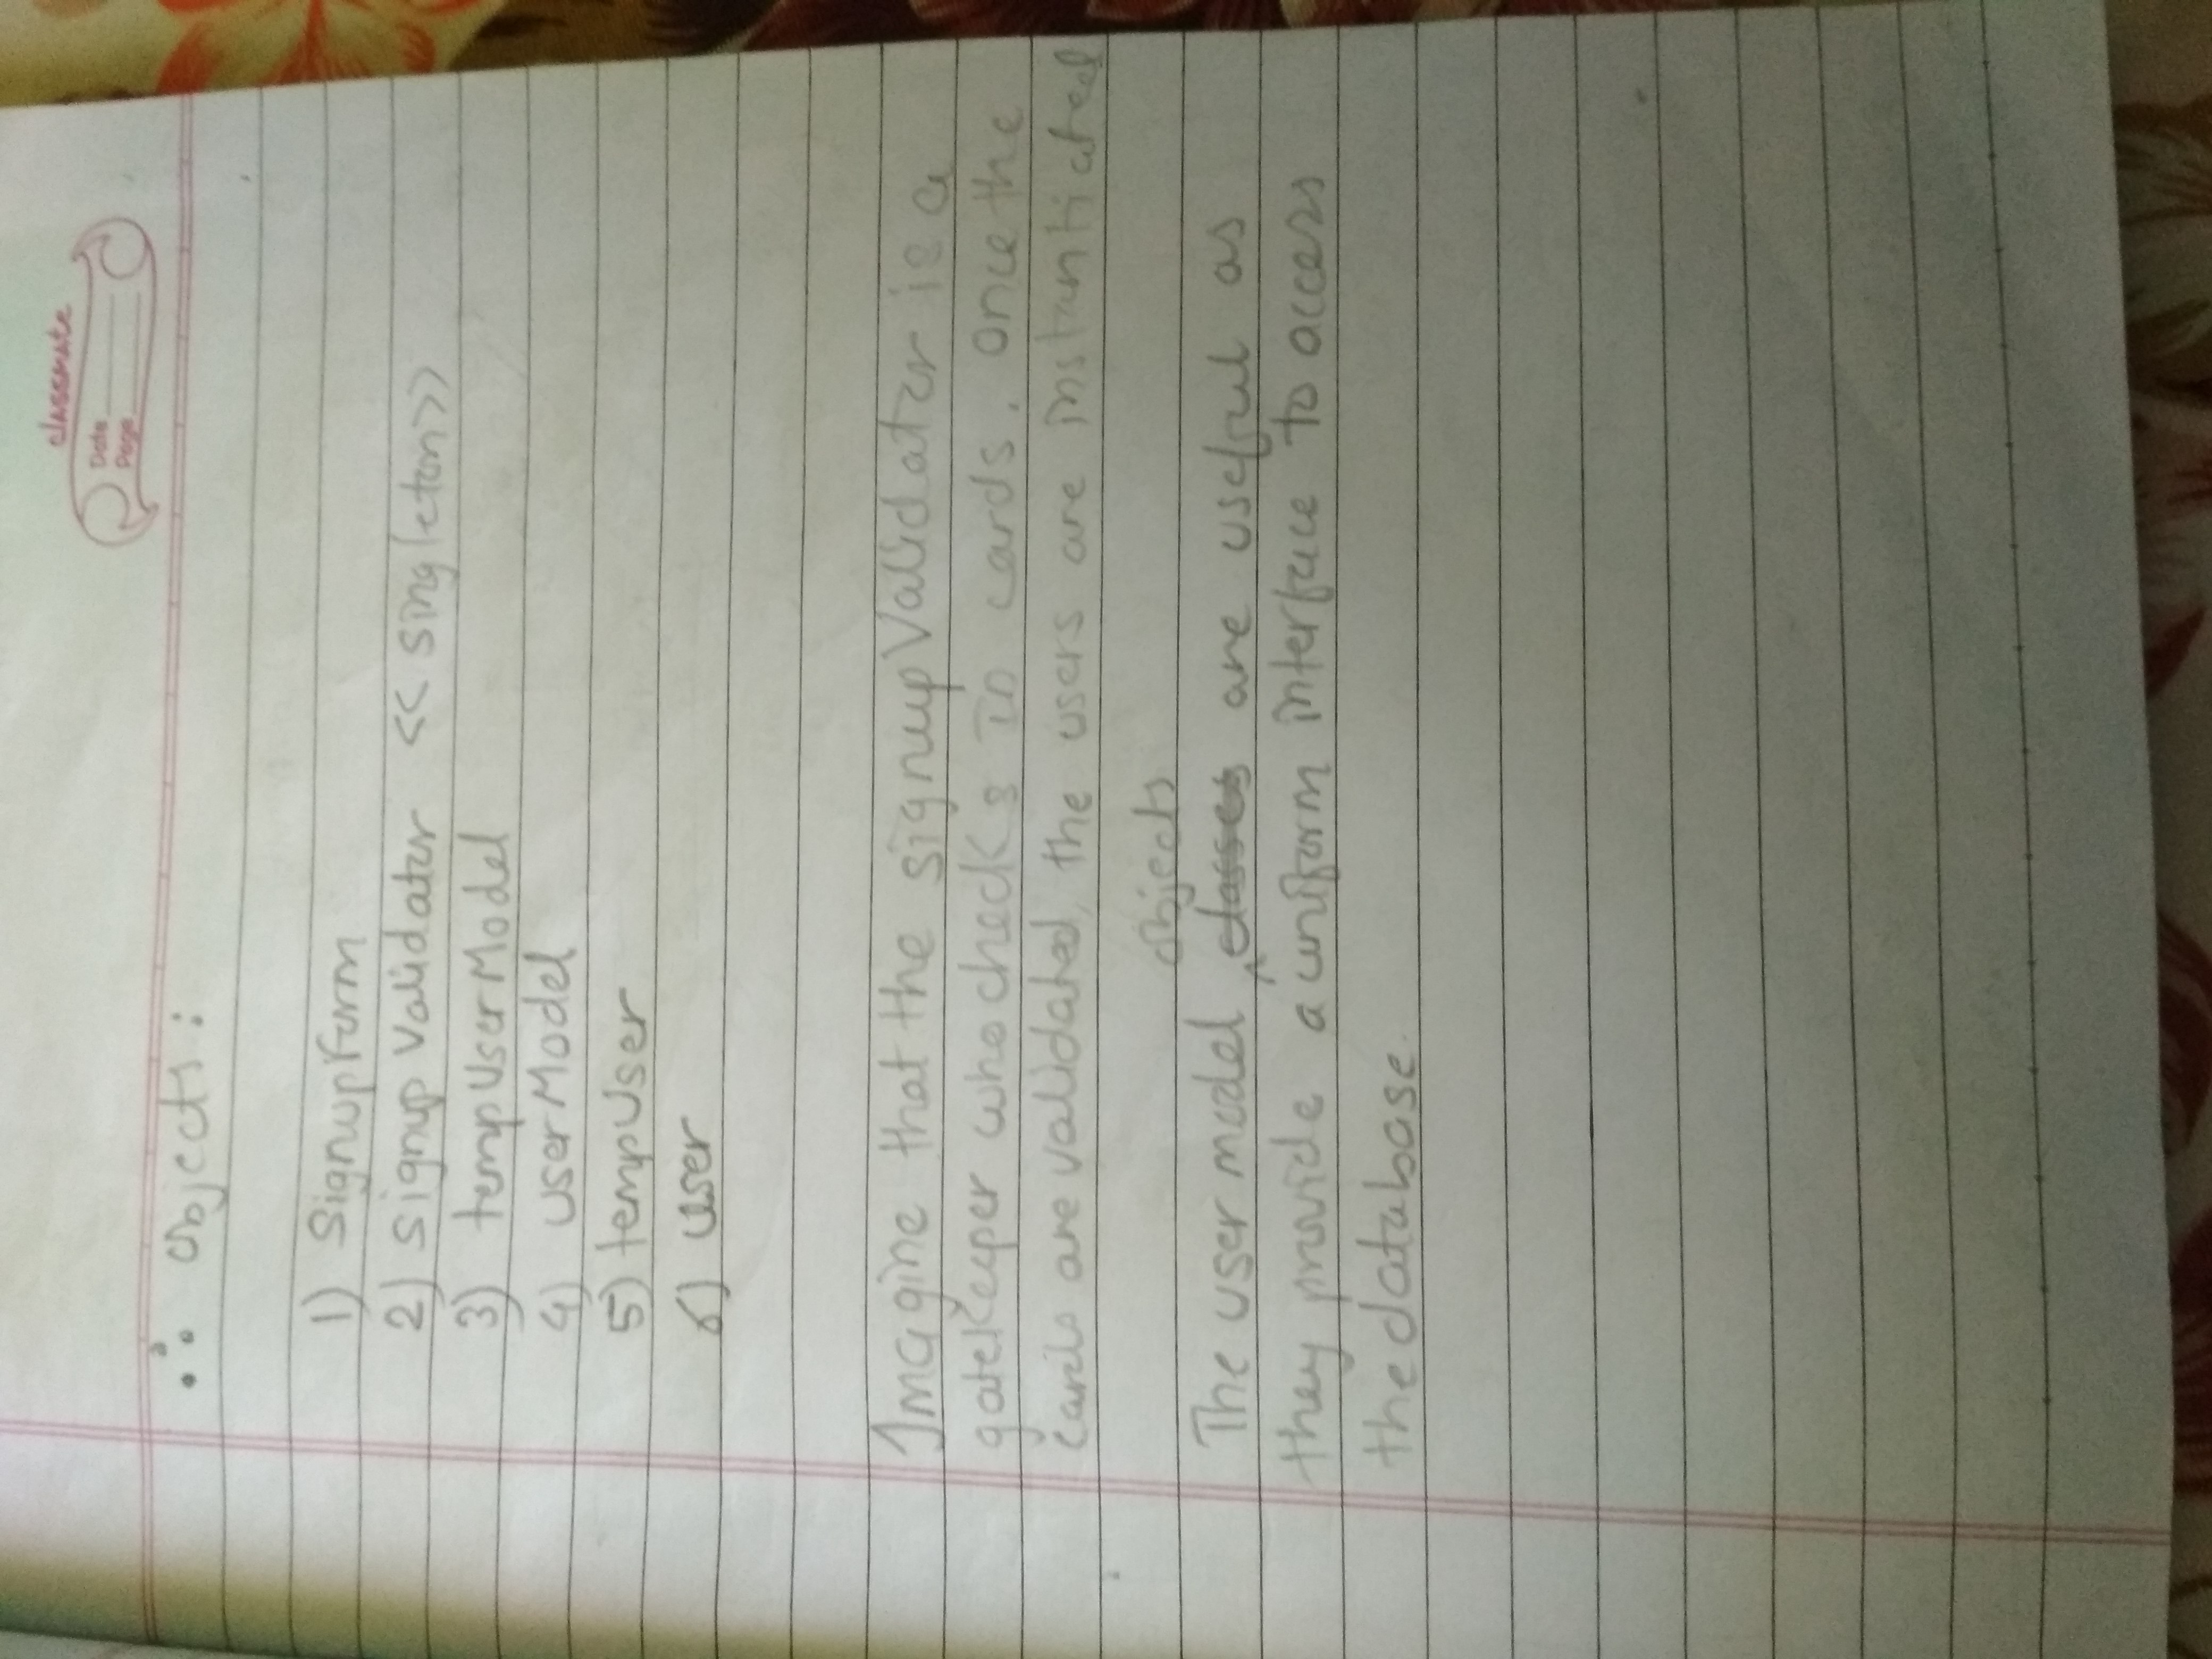 classmate
Date
Page
∴ Objects :
1) SignupForm
2) signupValidator <<singleton>>
3) tempUserModel
4) userModel
5) tempUser
6) user
Imagine that the signupValidator is a
gatekeeper who checks ID cards. Once the
cards are validated, the users are instantiated
objects
The user model ^ classes are useful as
they provide a uniform interface to access
the database.